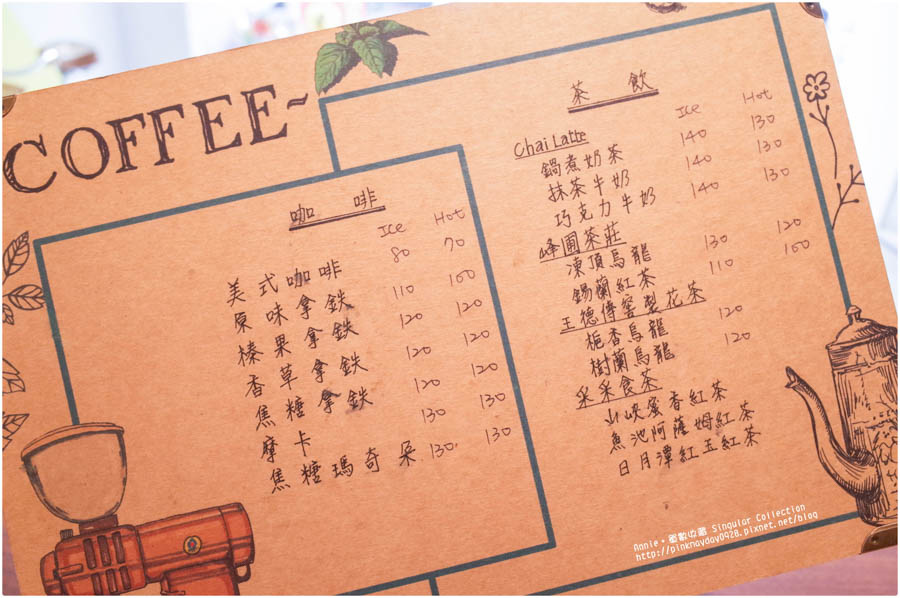 COFFEE~
咖啡
Ice Hot
美式咖啡 80 70
原味拿鉄 110 100
榛果拿鉄 120 120
香草拿鉄 120 120
焦糖拿鉄 120 120
摩卡 130 130
焦糖瑪奇朵 130 130
茶飲
Ice Hot
Chai Latte
鍋煮奶茶 140 130
抹茶牛奶 140 130
巧克力牛奶 140 130
峰圃茶莊
凍頂烏龍 130 120
錫蘭紅茶 110 100
王德傳窨製花茶
梔香烏龍 120
樹蘭烏龍 120
采采食茶
山峽蜜香紅茶
魚池阿薩姆紅茶
日月潭紅玉紅茶
Annie。單數收藏 Singular Collection
http://pinkmayday0928.pixnet.net/blog